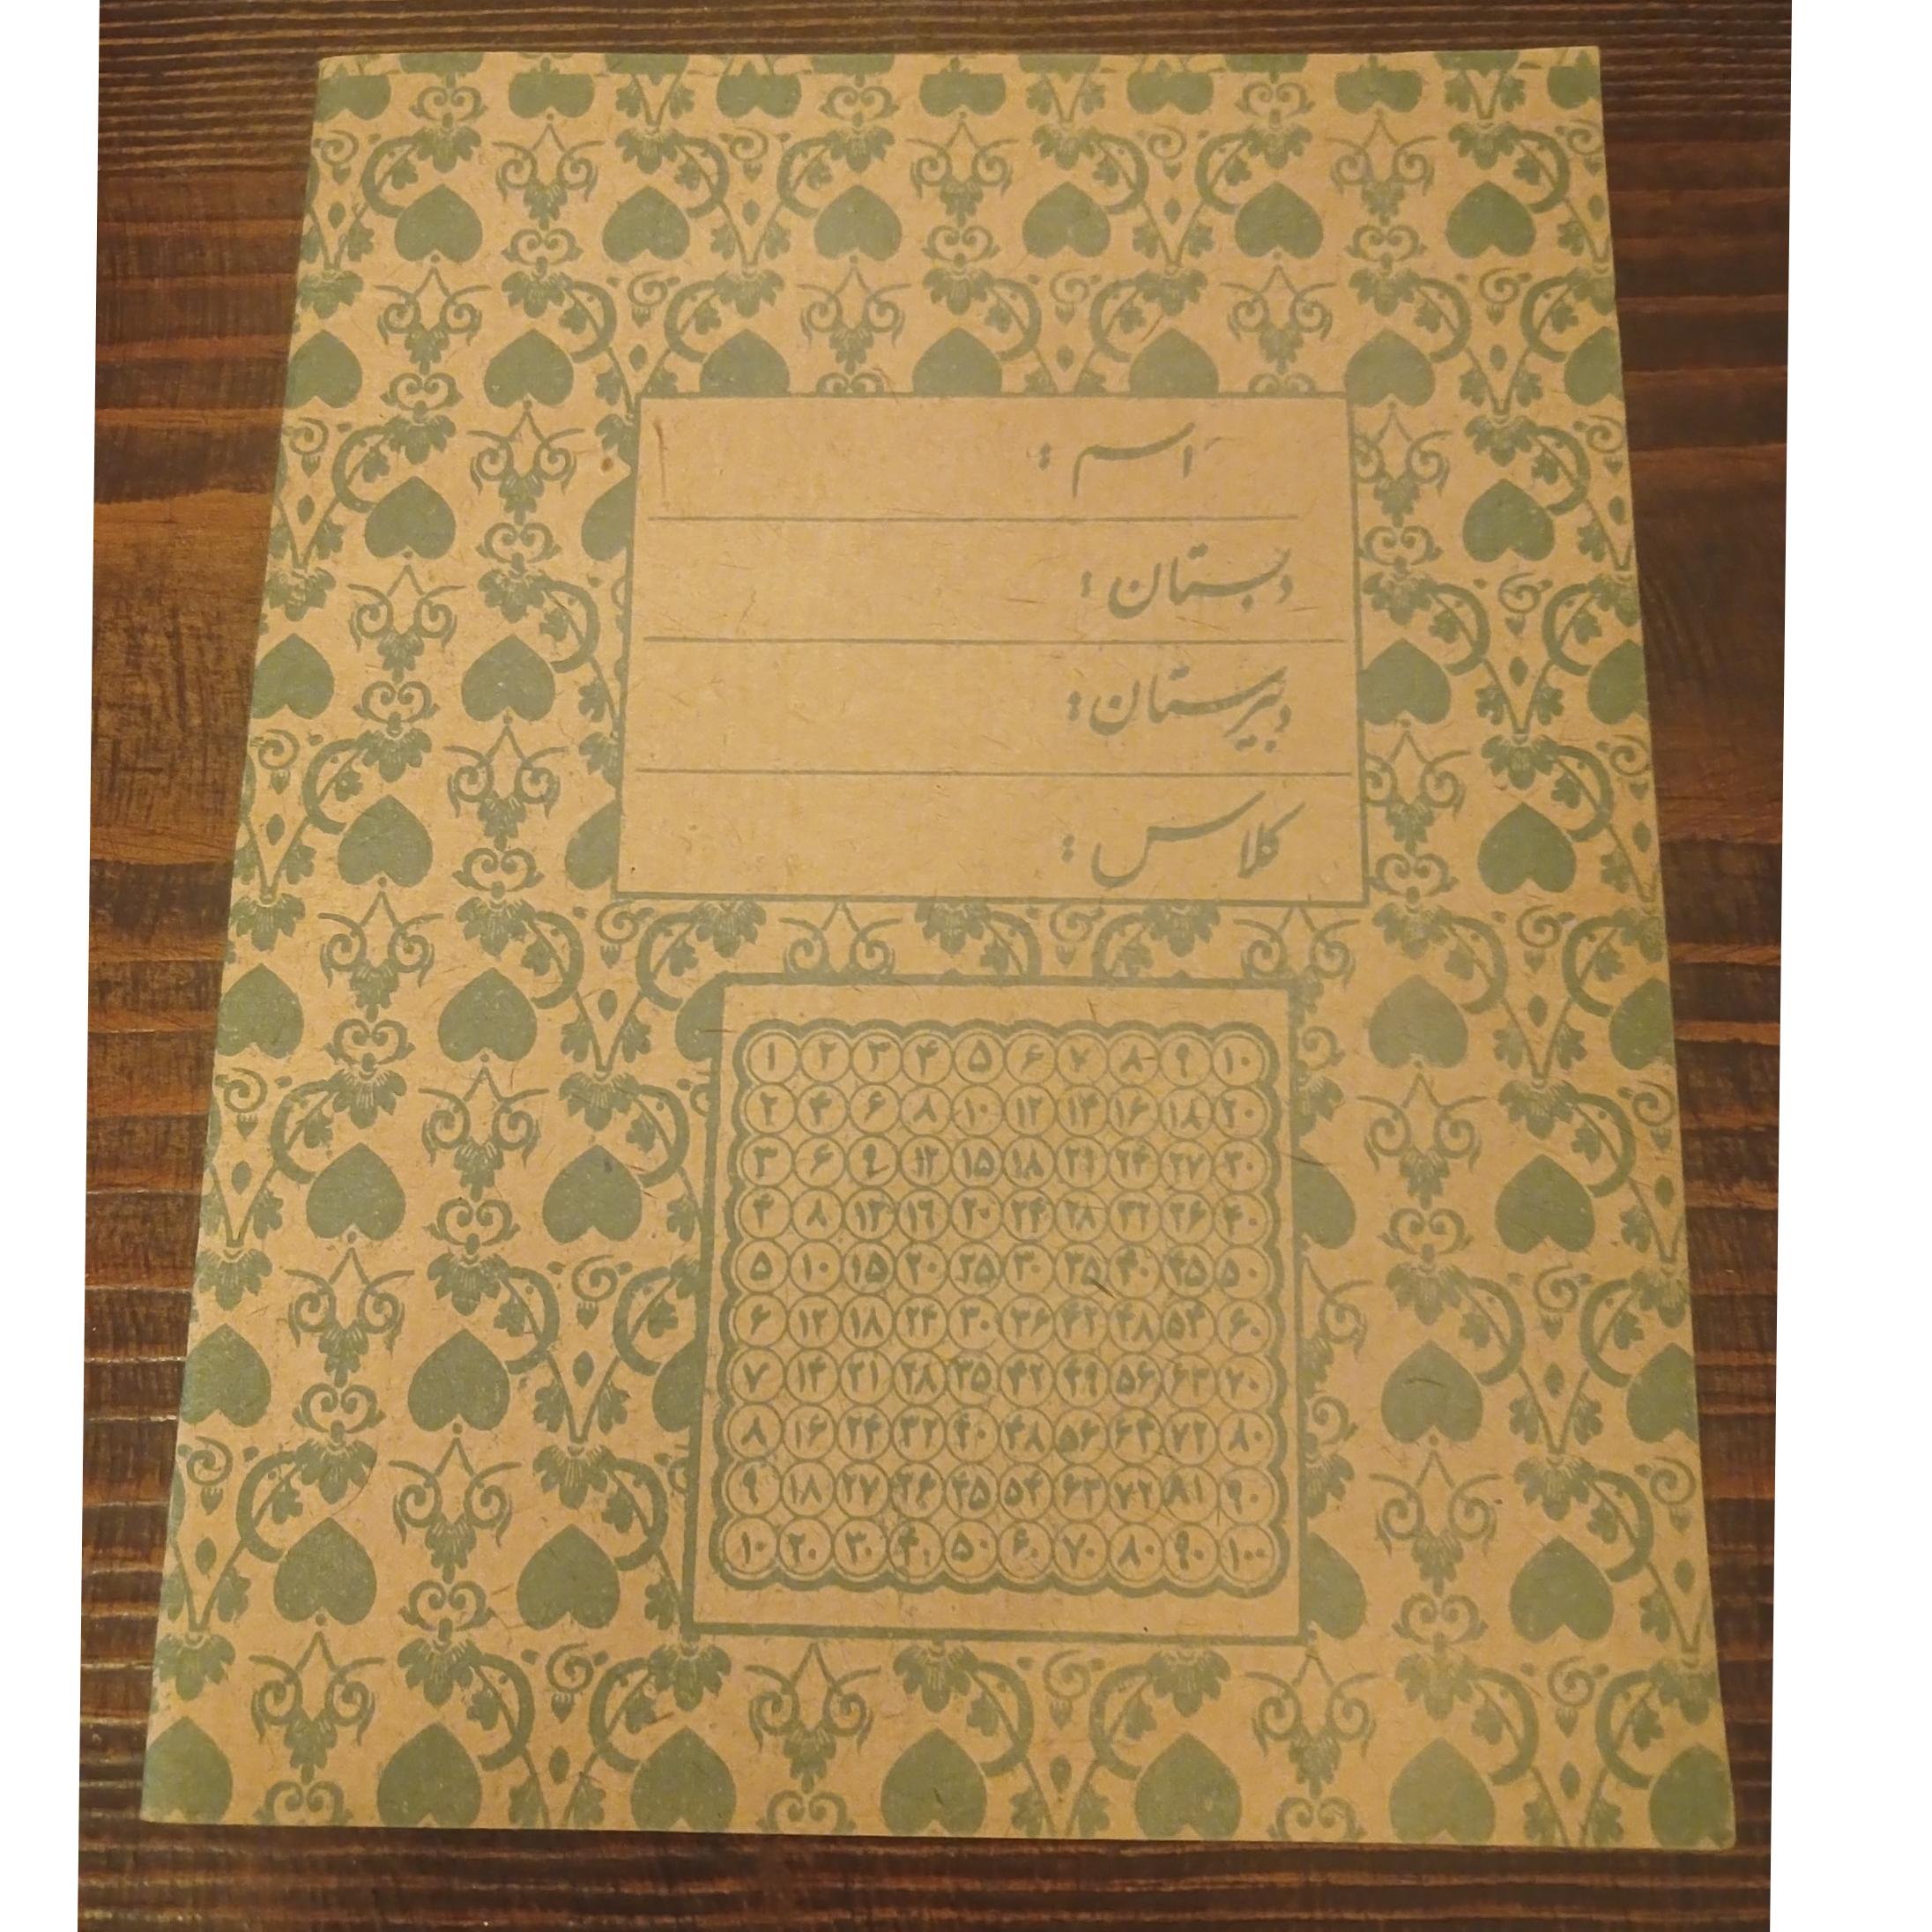 اسم :
دبستان :
دبیرستان :
کلاس :
۱ ۲ ۳ ۴ ۵ ۶ ۷ ۸ ۹ ۱۰
۲ ۴ ۶ ۸ ۱۰ ۱۲ ۱۴ ۱۶ ۱۸ ۲۰
۳ ۶ ۹ ۱۲ ۱۵ ۱۸ ۲۱ ۲۴ ۲۷ ۳۰
۴ ۸ ۱۲ ۱۶ ۲۰ ۲۴ ۲۸ ۳۲ ۳۶ ۴۰
۵ ۱۰ ۱۵ ۲۰ ۲۵ ۳۰ ۳۵ ۴۰ ۴۵ ۵۰
۶ ۱۲ ۱۸ ۲۴ ۳۰ ۳۶ ۴۲ ۴۸ ۵۴ ۶۰
۷ ۱۴ ۲۱ ۲۸ ۳۵ ۴۲ ۴۹ ۵۶ ۶۳ ۷۰
۸ ۱۶ ۲۴ ۳۲ ۴۰ ۴۸ ۵۶ ۶۴ ۷۲ ۸۰
۹ ۱۸ ۲۷ ۳۶ ۴۵ ۵۴ ۶۳ ۷۲ ۸۱ ۹۰
۱۰ ۲۰ ۳۰ ۴۰ ۵۰ ۶۰ ۷۰ ۸۰ ۹۰ ۱۰۰